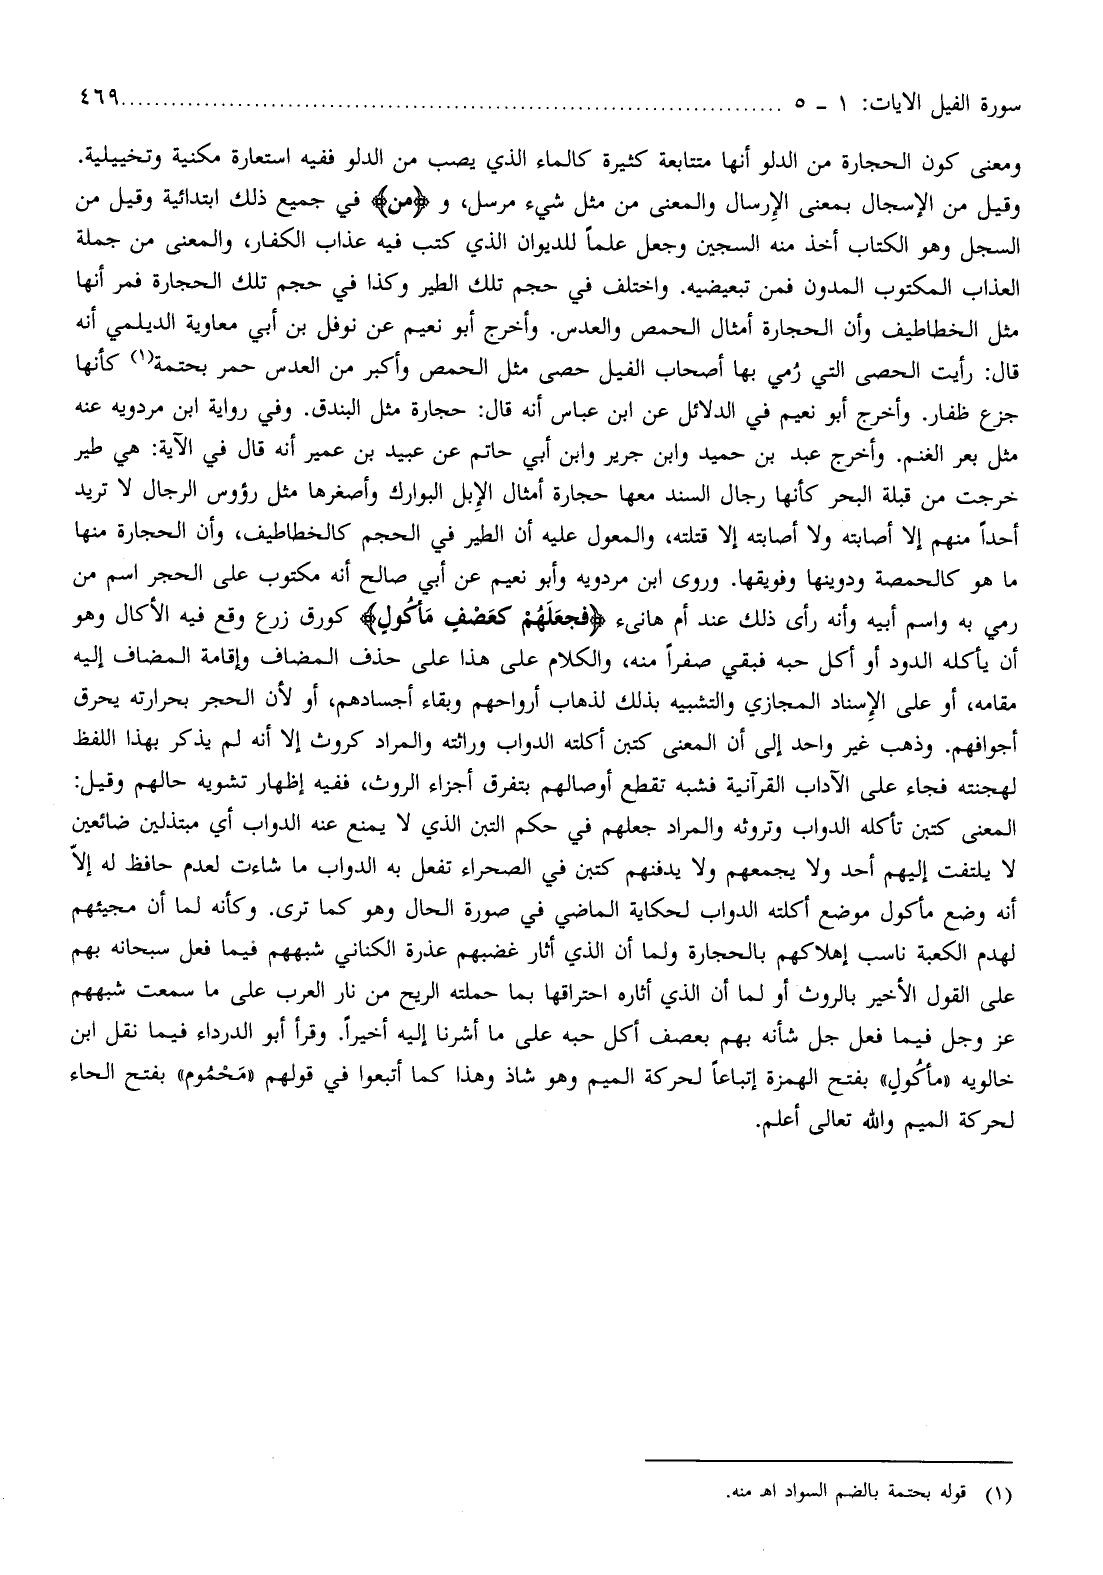 سورة الفيل الايات: ١ - ٥ ........................................................................ ٤٦٩
ومعنى كون الحجارة من الدلو أنها متتابعة كثيرة كالماء الذي يصب من الدلو ففيه استعارة مكنية وتخييلية.
وقيل من الإسجال بمعنى الإرسال والمعنى من مثل شيء مرسل، و ﴿من﴾ في جميع ذلك ابتدائية وقيل من
السجل وهو الكتاب أخذ منه السجين وجعل علماً للديوان الذي كتب فيه عذاب الكفار، والمعنى من جملة
العذاب المكتوب المدون فمن تبعيضيه. واختلف في حجم تلك الطير وكذا في حجم تلك الحجارة فمر أنها
مثل الخطاطيف وأن الحجارة أمثال الحمص والعدس. وأخرج أبو نعيم عن نوفل بن أبي معاوية الديلمي أنه
قال: رأيت الحصى التي رُمي بها أصحاب الفيل حصى مثل الحمص وأكبر من العدس حمر بحتمة(١) كأنها
جزع ظفار. وأخرج أبو نعيم في الدلائل عن ابن عباس أنه قال: حجارة مثل البندق. وفي رواية ابن مردويه عنه
مثل بعر الغنم. وأخرج عبد بن حميد وابن جرير وابن أبي حاتم عن عبيد بن عمير أنه قال في الآية: هي طير
خرجت من قبلة البحر كأنها رجال السند معها حجارة أمثال الإبل البوارك وأصغرها مثل رؤوس الرجال لا تريد
أحداً منهم إلا أصابته ولا أصابته إلا قتلته، والمعول عليه أن الطير في الحجم كالخطاطيف، وأن الحجارة منها
ما هو كالحمصة ودوينها وفويقها. وروى ابن مردويه وأبو نعيم عن أبي صالح أنه مكتوب على الحجر اسم من
رمي به واسم أبيه وأنه رأى ذلك عند أم هانىء ﴿فجعَلَهُمْ كعَصْفٍ مَأكُولٍ﴾ كورق زرع وقع فيه الأكال وهو
أن يأكله الدود أو أكل حبه فبقي صفراً منه، والكلام على هذا على حذف المضاف وإقامة المضاف إليه
مقامه، أو على الإسناد المجازي والتشبيه بذلك لذهاب أرواحهم وبقاء أجسادهم، أو لأن الحجر بحرارته يحرق
أجوافهم. وذهب غير واحد إلى أن المعنى كتبن أكلته الدواب وراثته والمراد كروث إلا أنه لم يذكر بهذا اللفظ
لهجنته فجاء على الآداب القرآنية فشبه تقطع أوصالهم بتفرق أجزاء الروث، ففيه إظهار تشويه حالهم وقيل:
المعنى كتبن تأكله الدواب وتروثه والمراد جعلهم في حكم التبن الذي لا يمنع عنه الدواب أي مبتذلين ضائعين
لا يلتفت إليهم أحد ولا يجمعهم ولا يدفنهم كتبن في الصحراء تفعل به الدواب ما شاءت لعدم حافظ له إلاّ
أنه وضع مأكول موضع أكلته الدواب لحكاية الماضي في صورة الحال وهو كما ترى. وكأنه لما أن مجيئهم
لهدم الكعبة ناسب إهلاكهم بالحجارة ولما أن الذي أثار غضبهم عذرة الكناني شبههم فيما فعل سبحانه بهم
على القول الأخير بالروث أو لما أن الذي أثاره احتراقها بما حملته الريح من نار العرب على ما سمعت شبههم
عز وجل فيما فعل جل شأنه بهم بعصف أكل حبه على ما أشرنا إليه أخيراً. وقرأ أبو الدرداء فيما نقل ابن
خالويه «مأكُولٍ» بفتح الهمزة إتباعاً لحركة الميم وهو شاذ وهذا كما أتبعوا في قولهم «مَحْمُوم» بفتح الحاء
لحركة الميم والله تعالى أعلم.
(١) قوله بحتمة بالضم السواد اهـ منه.